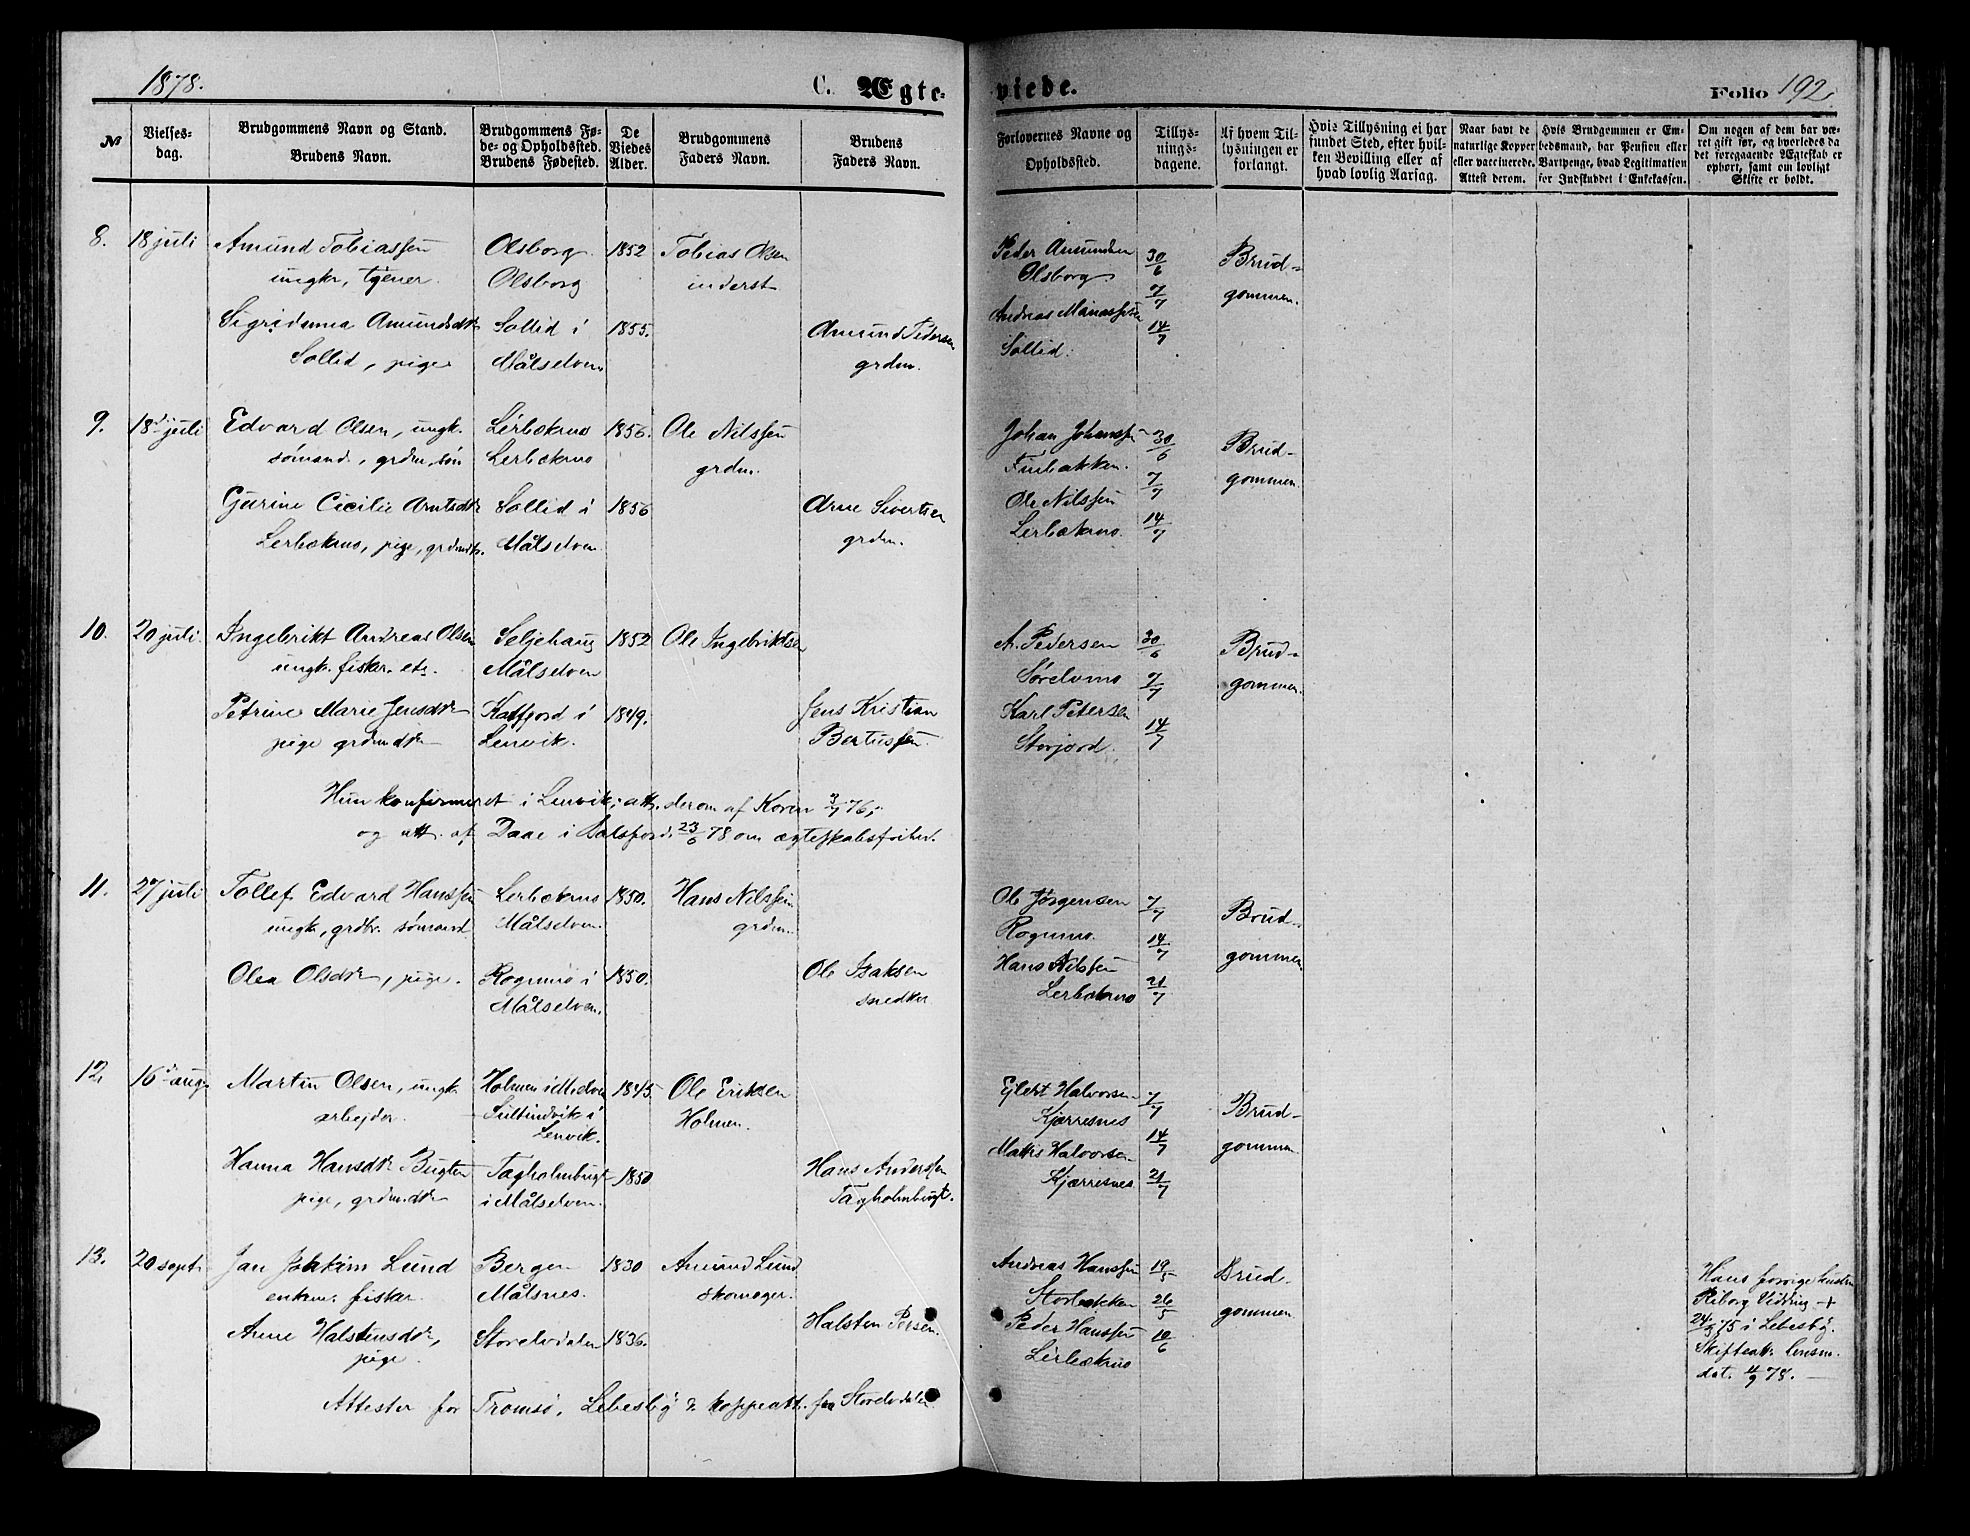 1878.
C. Ægte-
viede.
Folio 192.
№
Vielses-
dag.
Brudgommens Navn og Stand.
Brudens Navn.
Brudgommens Fø-
de- og Opholdssted.
Brudens Fødested.
De
Viedes
Alder.
Brudgommens
Faders Navn.
Brudens
Faders Navn.
Forlovernes Navne og
Opholdssted.
Tillys-
nings-
dagene.
Af hvem Til-
lysningen er
forlangt.
Hvis Tillysning ei har
fundet Sted, efter hvil-
ken Bevilling eller af
hvad lovlig Aarsag.
Naar havt de
naturlige Kopper
eller vaccinerede.
Attest derom.
Hvis Brudgommen er Em-
bedsmand, har Pension eller
Vartpenge, hvad Legitimation
for Indskuddet i Enkekassen.
Om nogen af dem har væ-
ret gift før, og hvorledes da
det foregaaende Ægteskab er
ophørt, samt om lovligt
Skifte er holdt.
8. 18 juli Amund Tobiassen Olsborg 1852 Tobias Olsen
ungkr, tjener. Olsborg inderst
Sigridanna Amundsdtr Sollid i 1855. Amund Pedersen
Sollid, pige Målselven grdm.
Peder Amundsen 30/6 Brud-
Olsborg 7/7 gommen.
Andreas Manassesen 14/7
Sollid.
9. 18de juli Edvard Olsen, ungk. Lerbækmo 1856. Ole Nilssen
sömand, grdm. sön Lerbækmo grdm.
Gjurine Cicilie Arntsdtr Sollid i 1856 Arne Sivertsen
Lerbækmo, pige, grdmdtr. Målselven. grdm.
Johan Johanssen 30/6 Brud-
Finbakken. 7/7 gommen.
Ole Nilssen
Lerbækmo. 14/7
10. 20 juli. Ingebrikt Andreas Olsen Seljehaug 1852 Ole Ingebriktsen
ungk. fisker etc. Målselven
Petrine Marie Jensdtr Kattfjord i 1849. Jens Kristian
pige grdmdtr Lenvik. Bertussen.
A. Pedersen 30/6 Brud-
Sörelvmo 7/7 gommen.
Karl Petersen
Storjord. 14/7
Hun konfirmeret i Lenvik; att. derom af Koren 3/7 76;
og att. af Daae i Balsfjord 23/6 78 om ægteskabsfrihed.
11. 27 juli Tollef Edvard Hanssen Lerbækmo 1850. Hans Nilssen
ungk, grdbr. sömand Målselven. grdm.
Olea Olsdtr, pige. Rognmo i 1850. Ole Isaksen
Målselven. snedker
Ole Jörgensen 7/7 Brud-
Rognmo. 14/7 gommen
Hans Nilssen
Lerbækmo 21/7
12. 16de aug. Martin Olsen, ungk. Holmen i Målselven 1845. Ole Eriksen
arbejder. Sultindvik i Holmen.
Lenvik.
Hanna Hansdtr Bugten Tagholmbugt 1850 Hans Anderssen
pige, grdmdtr i Målselven. Tagholmbugt.
Ejlert Halvorsen 7/7 Brud-
Kjærresnes 14/7 gommen
Mattis Halvorsen
Kjærresnes 21/7
13. 20 sept. Jan Joakim Lund Bergen 1830 Amund Lund
enkem. fisker. Målsnes. skomager.
Anne Halstensdtr, Storelvdalen 1836. Halsten Persen.
pige.
Andreas Hanssen 19/5 Brud-
Storbækken 26/5 gommen
Peder Hanssen 10/6
Lerbækmo
Hans forrige hustru
Riborg Vidding +
24/3 75 i Lebesby.
Skifteatt. lensm.
dat. 4/9 78.
Attester for Tromsö, Lebesby & koppeatt. fra Storelvdalen.